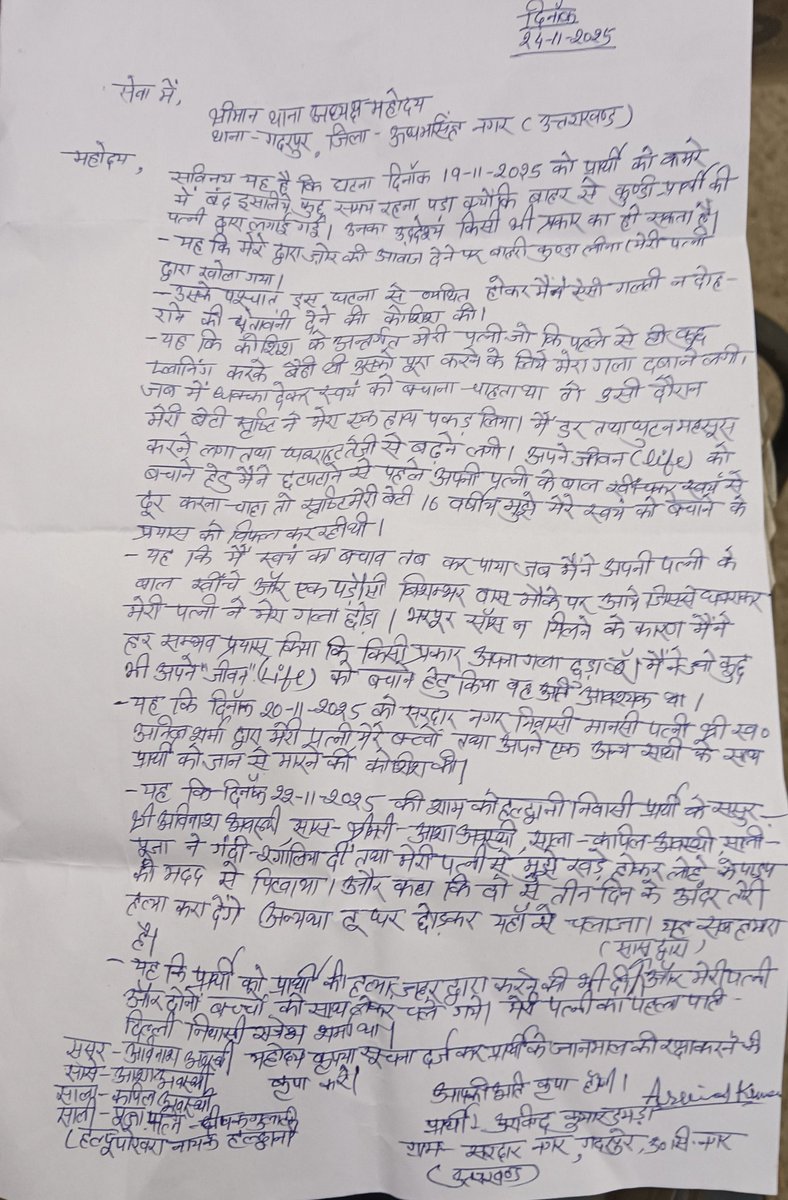 दिनाँक
24-11-2025
सेवा में,
श्रीमान थाना अध्यक्ष महोदय
थाना - गदरपुर, जिला - ऊधमसिंह नगर (उत्तराखण्ड)
महोदय,
सविनय यह है कि घटना दिनाँक 19-11-2025 को प्रार्थी को कमरे
में बंद इसलिये कुछ समय रहना पड़ा क्योंकि बाहर से कुण्डी प्रार्थी की
पत्नी द्वारा लगाई गई। उनका उद्देश्य किसी भी प्रकार का हो सकता है।
- यह कि मेरे द्वारा ज़ोर की आवाज देने पर बाहरी कुण्डा मेरी पत्नी
द्वारा खोला गया।
- उसके पश्चात इस घटना से व्यथित होकर मैंने ऐसी गलती न दोह-
राने की चेतावनी देने की कोशिश की।
- यह कि कोशिश के अन्तर्गत मेरी पत्नी जो कि पहले से ही कुछ
प्लानिंग करके बैठी थी उसको पूरा करने के लिये मेरा गला दबाने लगी।
जब में धक्का देकर स्वयं को बचाना चाहता था तो उसी दौरान
मेरी बेटी सृष्टि ने मेरा एक हाथ पकड़ लिया। मैं डर तथा घुटन महसूस
करने लगा तथा घबराहट तेज़ी से बढ़ने लगी। अपने जीवन (life) को
बचाने हेतु मैंने छटपटाने से पहले अपनी पत्नी के बाल खींचकर स्वयं से
दूर करना चाहा तो सृष्टि मेरी बेटी 16 वर्षीय मुझे मेरे स्वयं को बचाने के
प्रयास को विफल कर रही थी।
- यह कि मैं स्वयं का बचाव तब कर पाया जब मैंने अपनी पत्नी के
बाल खींचे और एक पड़ोसी बिशम्भर दास मौके पर आये जिससे घबराकर
मेरी पत्नी ने मेरा गला छोड़ा। भरपूर साँस न मिलने के कारण मैंने
हर सम्भव प्रयास किया कि किसी प्रकार अपना गला छुड़ा लूँ। मैंने जो कुछ
भी अपने "जीवन" (Life) को बचाने हेतु किया वह अति आवश्यक था।
- यह कि दिनाँक 20-11-2025 को सरदार नगर निवासी मानसी पत्नी श्री स्व०
शर्मा द्वारा मेरी पत्नी मेरे बच्चों तथा अपने एक अन्य साथी के साथ
प्रार्थी को जान से मारने की कोशिश की।
- यह कि दिनाँक 22-11-2025 की शाम को हल्द्वानी निवासी प्रार्थी के ससुर -
श्री अविनाश अवस्थी सास - श्रीमती - आशा अवस्थी, साला - कपिल अवस्थी साली -
पूजा ने गंदी - २ गालिया दीं तथा मेरी पत्नी से मुझे खड़े होकर लोहे के पाइप
की मदद से पिटवाया। और कहा कि दो से तीन दिन के अंदर तेरी
हत्या करा देंगे अन्यथा तू घर छोड़कर यहाँ से चला जा। यह सब हमारा
है। (सास द्वारा)
- यह कि प्रार्थी को प्रार्थी की हत्या ज़हर द्वारा करने की भी दी। और मेरी पत्नी
और दोनों बच्चों को साथ लेकर चले गये। मेरी पत्नी का पहला पति -
दिल्ली निवासी राजेश शर्मा था।
महोदय कृपया सूचना दर्ज कर प्रार्थी के जानमाल की रक्षा करने की
कृपा करें।
ससुर - अविनाश अवस्थी
सास - आशा अवस्थी
साला - कपिल अवस्थी
साली - पूजा पत्नि - दीपक
(हल्दूपोखरा नायक हल्द्वानी
आपकी अति कृपा होगी।
Arvind Kumar
प्रार्थी - अरविंद कुमार
ग्राम - सरदार नगर, गदरपुर, ऊ० सि० नगर
(उत्तराखण्ड)